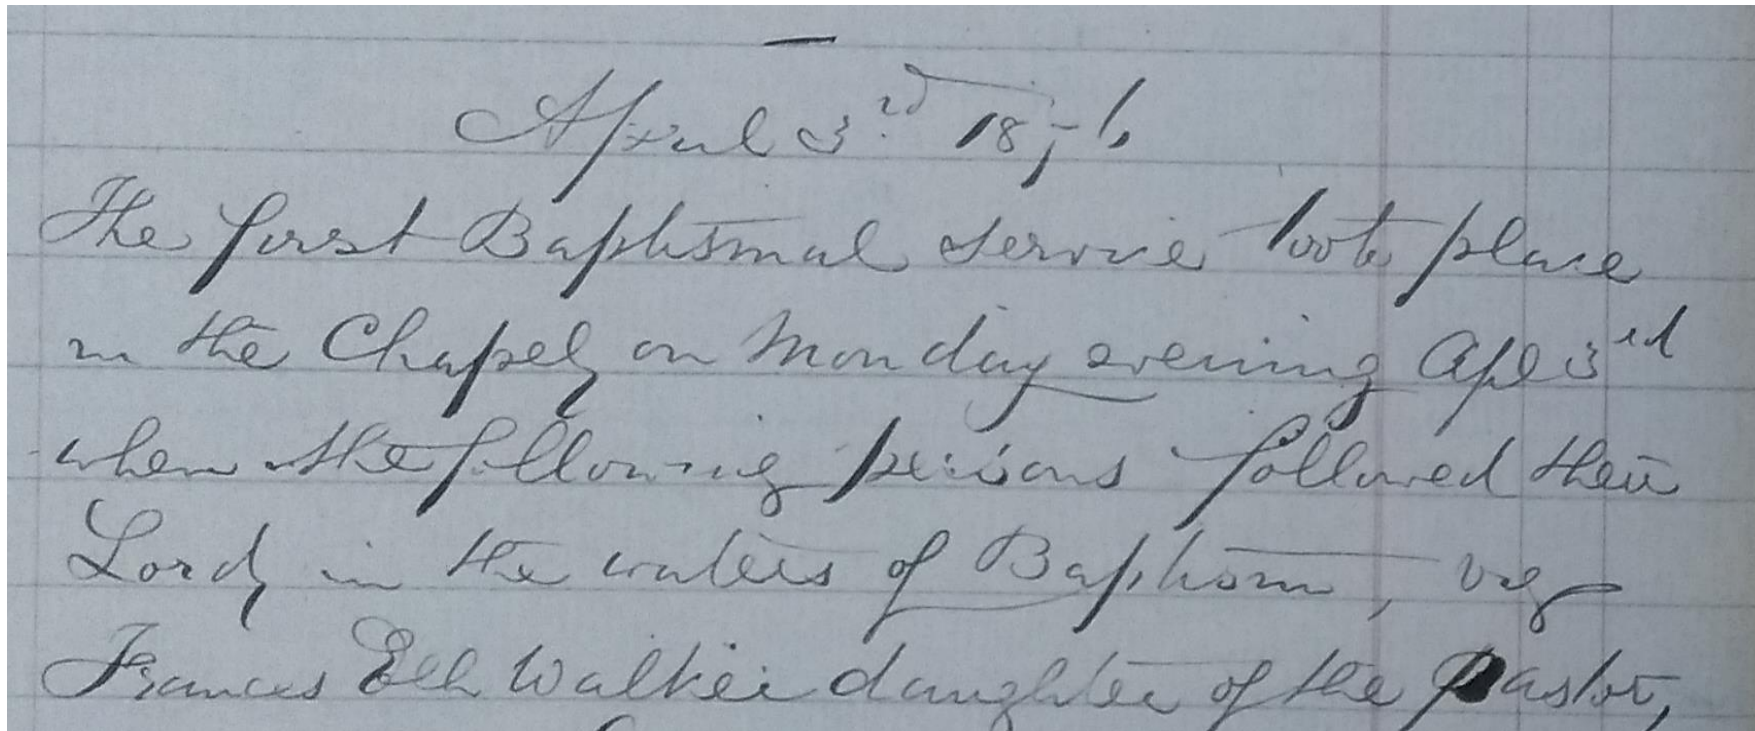 April 3rd 1876
The first Baptismal service took place
in the Chapel, on Monday evening Apl 3rd
when the following persons followed their
Lord, in the waters of Baptism, viz
Frances Ell Walker daughter of the Pastor,